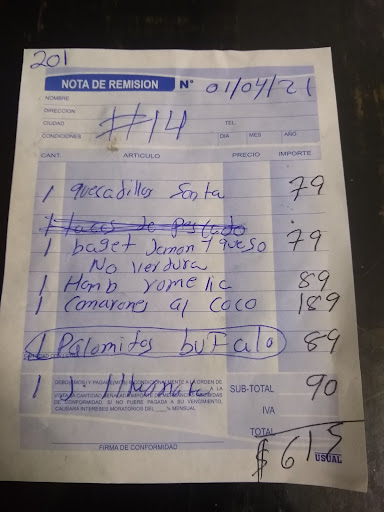 201
NOTA DE REMISION N° 01/04/21
NOMBRE
DIRECCION
CIUDAD TEL:
#14
CONDICIONES DIA MES AÑO
CANT. ARTICULO PRECIO IMPORTE
1 quecadillas Santa 79
1 tacos de pescado
1 baget Jamon y queso 79
No verdura
1 Hamb romelia 89
1 Camarones al coco 189
1 Palomitos bufalo 89
1 J. 90
SUB-TOTAL
DEBO(MOS) Y PAGARE(MOS) INCONDICIONALMENTE A LA ORDEN DE
A LA
VISTA LA CANTIDAD
DE CONFORMIDAD, SI NO FUERE PAGADA A SU VENCIMIENTO,
CAUSARA INTERESES MORATORIOS DEL % MENSUAL
IVA
TOTAL
$ 615
FIRMA DE CONFORMIDAD
USUAL